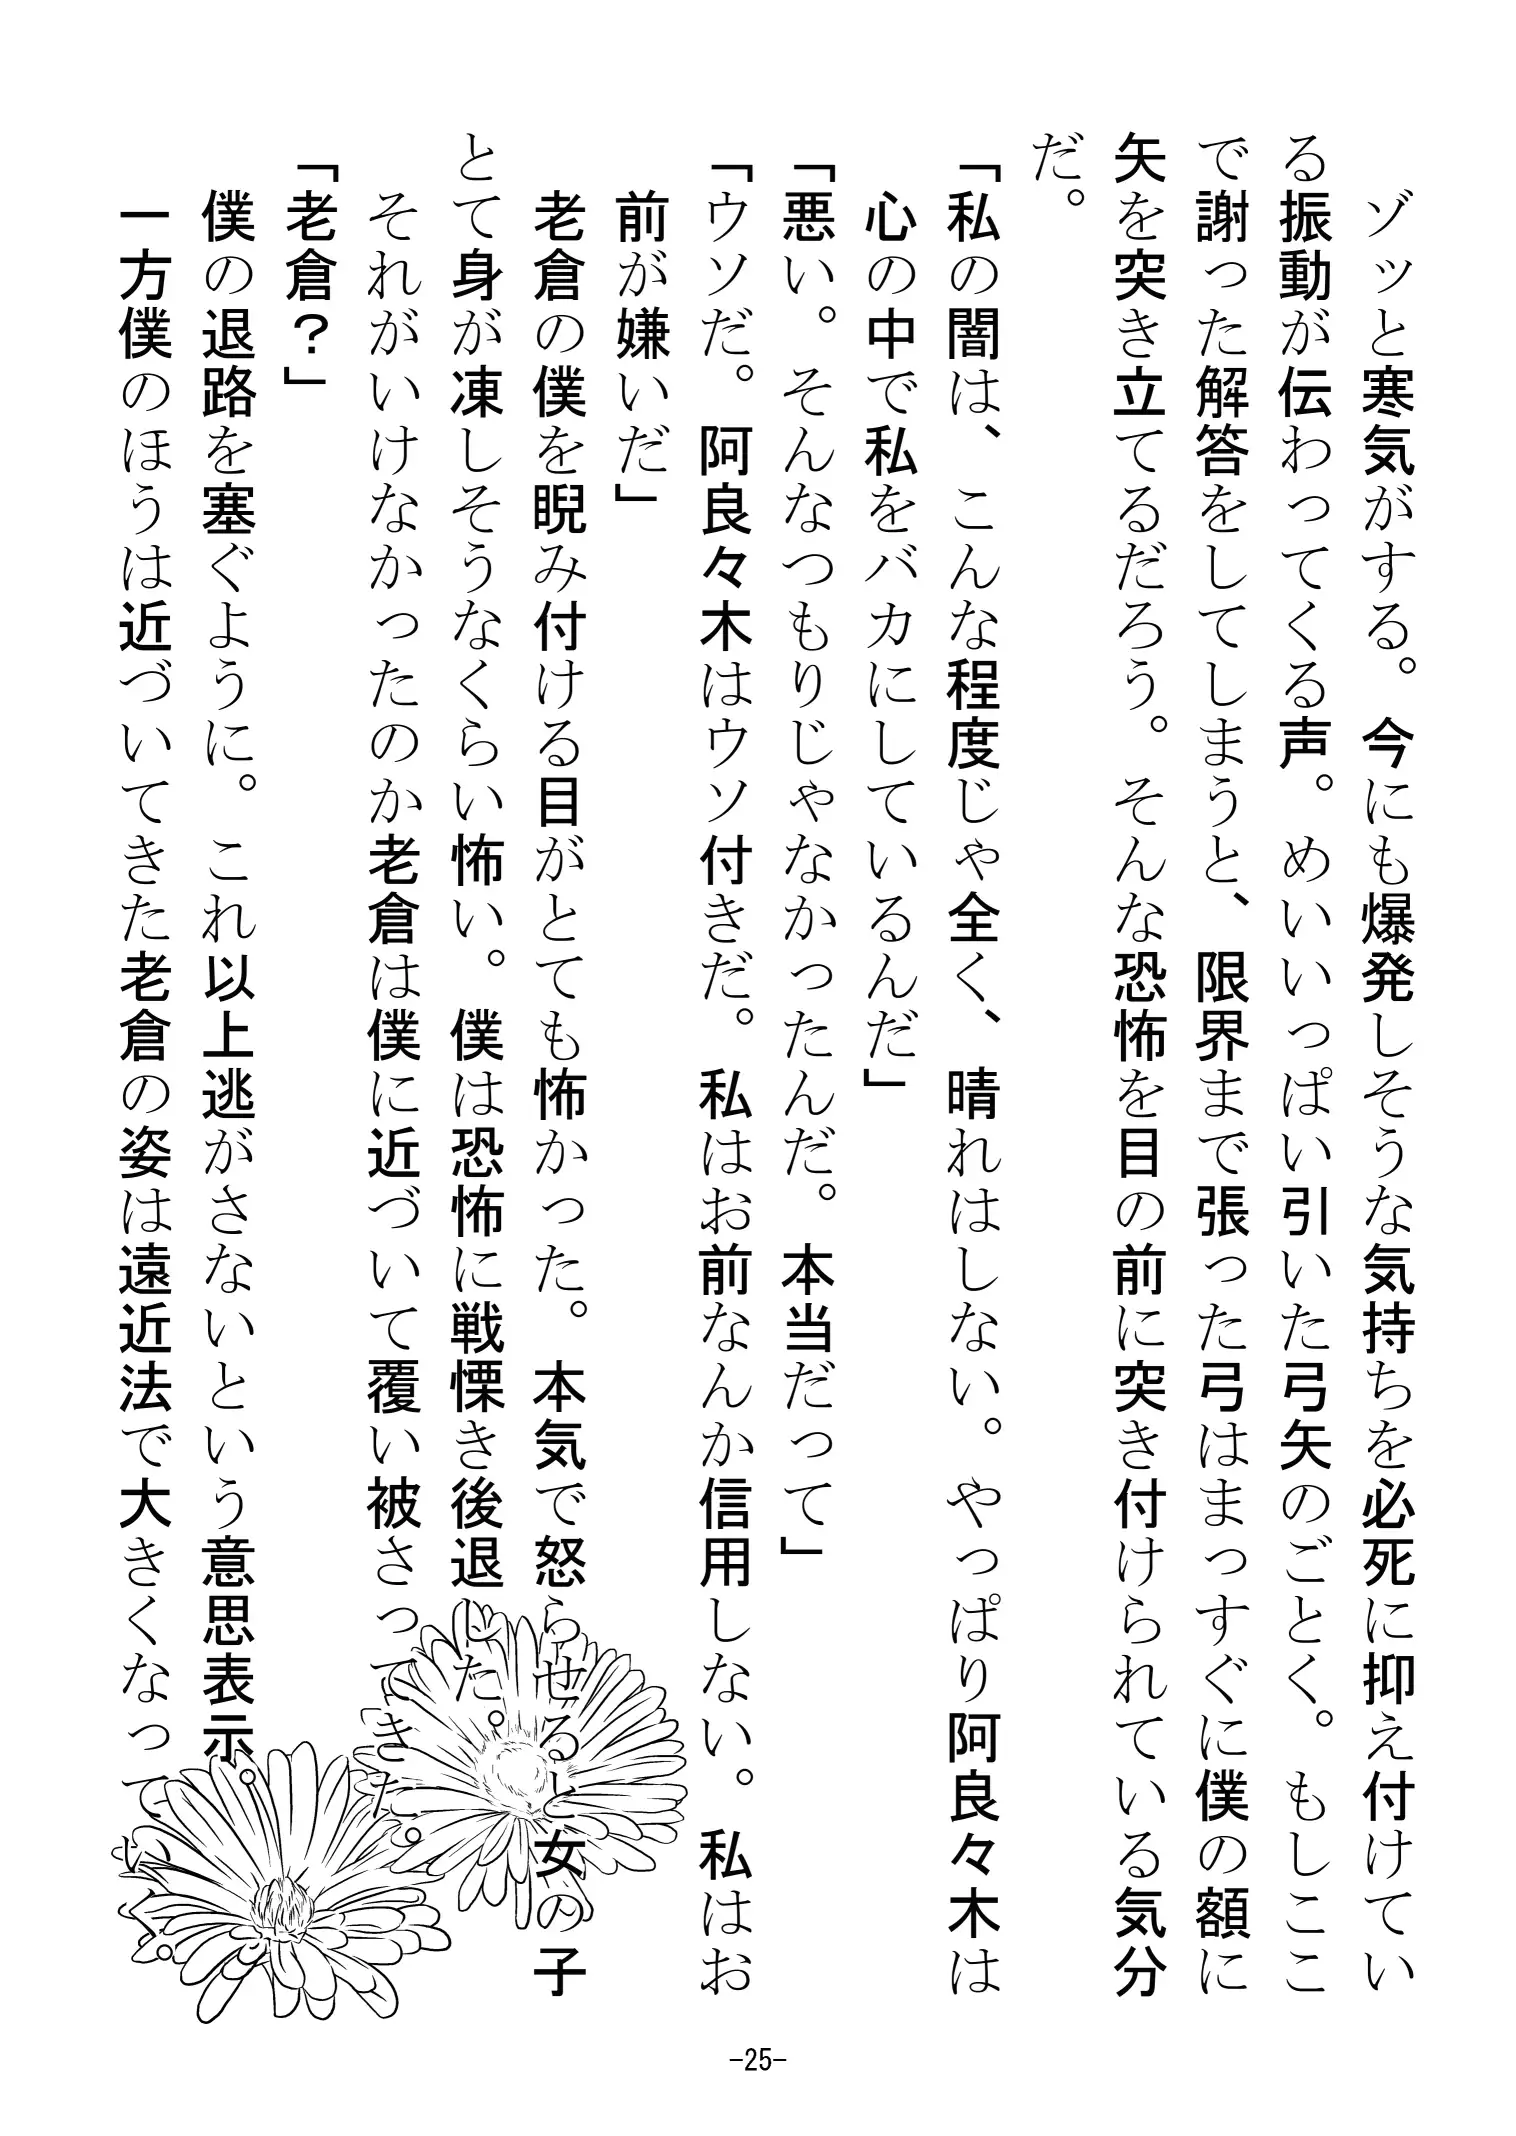 ゾッと寒気がする。今にも爆発しそうな気持ちを必死に抑え付けてい
る振動が伝わってくる声。めいいっぱい引いた弓矢のごとく。もしここ
で謝った解答をしてしまうと、限界まで張った弓はまっすぐに僕の額に
矢を突き立てるだろう。そんな恐怖を目の前に突き付けられている気分
だ。
「私の闇は、こんな程度じゃ全く、晴れはしない。やっぱり阿良々木は
心の中で私をバカにしているんだ」
「悪い。そんなつもりじゃなかったんだ。本当だって」
「ウソだ。阿良々木はウソ付きだ。私はお前なんか信用しない。私はお
前が嫌いだ」
老倉の僕を睨み付ける目がとても怖かった。本気で怒らせると女の子
とて身が凍しそうなくらい怖い。僕は恐怖に戦慄き後退した。
それがいけなかったのか老倉は僕に近づいて覆い被さってきた。
「老倉?」
僕の退路を塞ぐように。これ以上逃がさないという意思表示。
一方僕のほうは近づいてきた老倉の姿は遠近法で大きくなっていく。
-25-